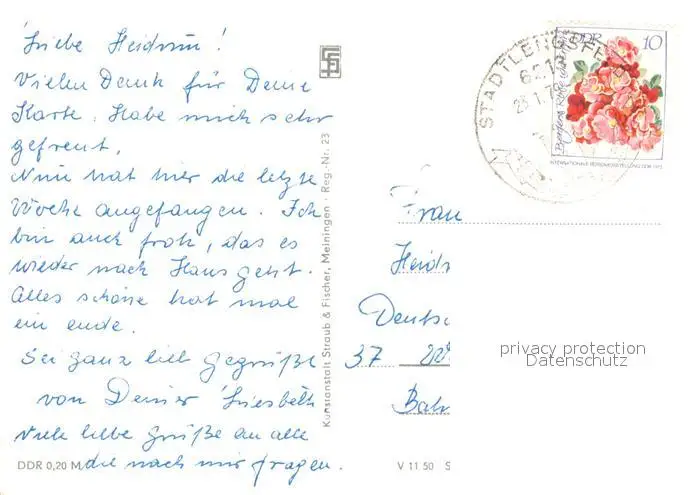 Liebe Heidrun!
Vielen Dank für Deine
Karte. Habe mich sehr
gefreut.
Nun hat hier die letzte
Woche angefangen. Ich
bin auch froh, das es
wieder nach Haus geht.
Alles schöne hat mal
ein ende.
Sei ganz lieb gegrüßt
von Deiner Liesbeth
Viele liebe Grüße an alle
die nach mir fragen.
DDR 0,20 M
Kunstanstalt Straub & Fischer, Meiningen · Reg.-Nr. 23
STADTLENGSFELD
DDR 10
INTERNATIONALE ROSENAUSSTELLUNG DDR 1972
Frau
Heidr
Deutsc
37
Bah
privacy protection
Datenschutz
V 11 50 S